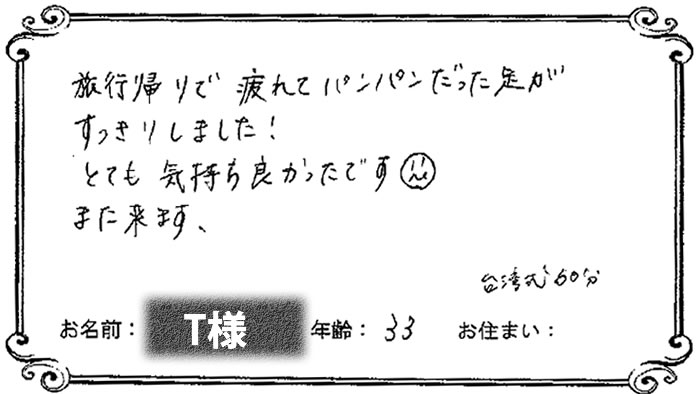 旅行帰りで 疲れてパンパンだった足が
すっきりしました!
とても 気持ち良かったです
また来ます、
台湾式 60分
お名前: T様 年齢: 33 お住まい: